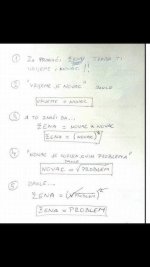 ① ZA PRONAĆI ŽENU TREBA TI
VRIJEME I NOVAC !!
② "VRIJEME JE NOVAC" DAKLE
VRIJEME = NOVAC
③ A TO ZNAČI DA...
ŽENA = NOVAC x NOVAC
ŽENA = (NOVAC)²
④ "NOVAC JE KORIJEN SVIH PROBLEMA"
DAKLE
NOVAC = √PROBLEM
⑤ DAKLE...
ŽENA = (√PROBLEM)²
ŽENA = PROBLEM